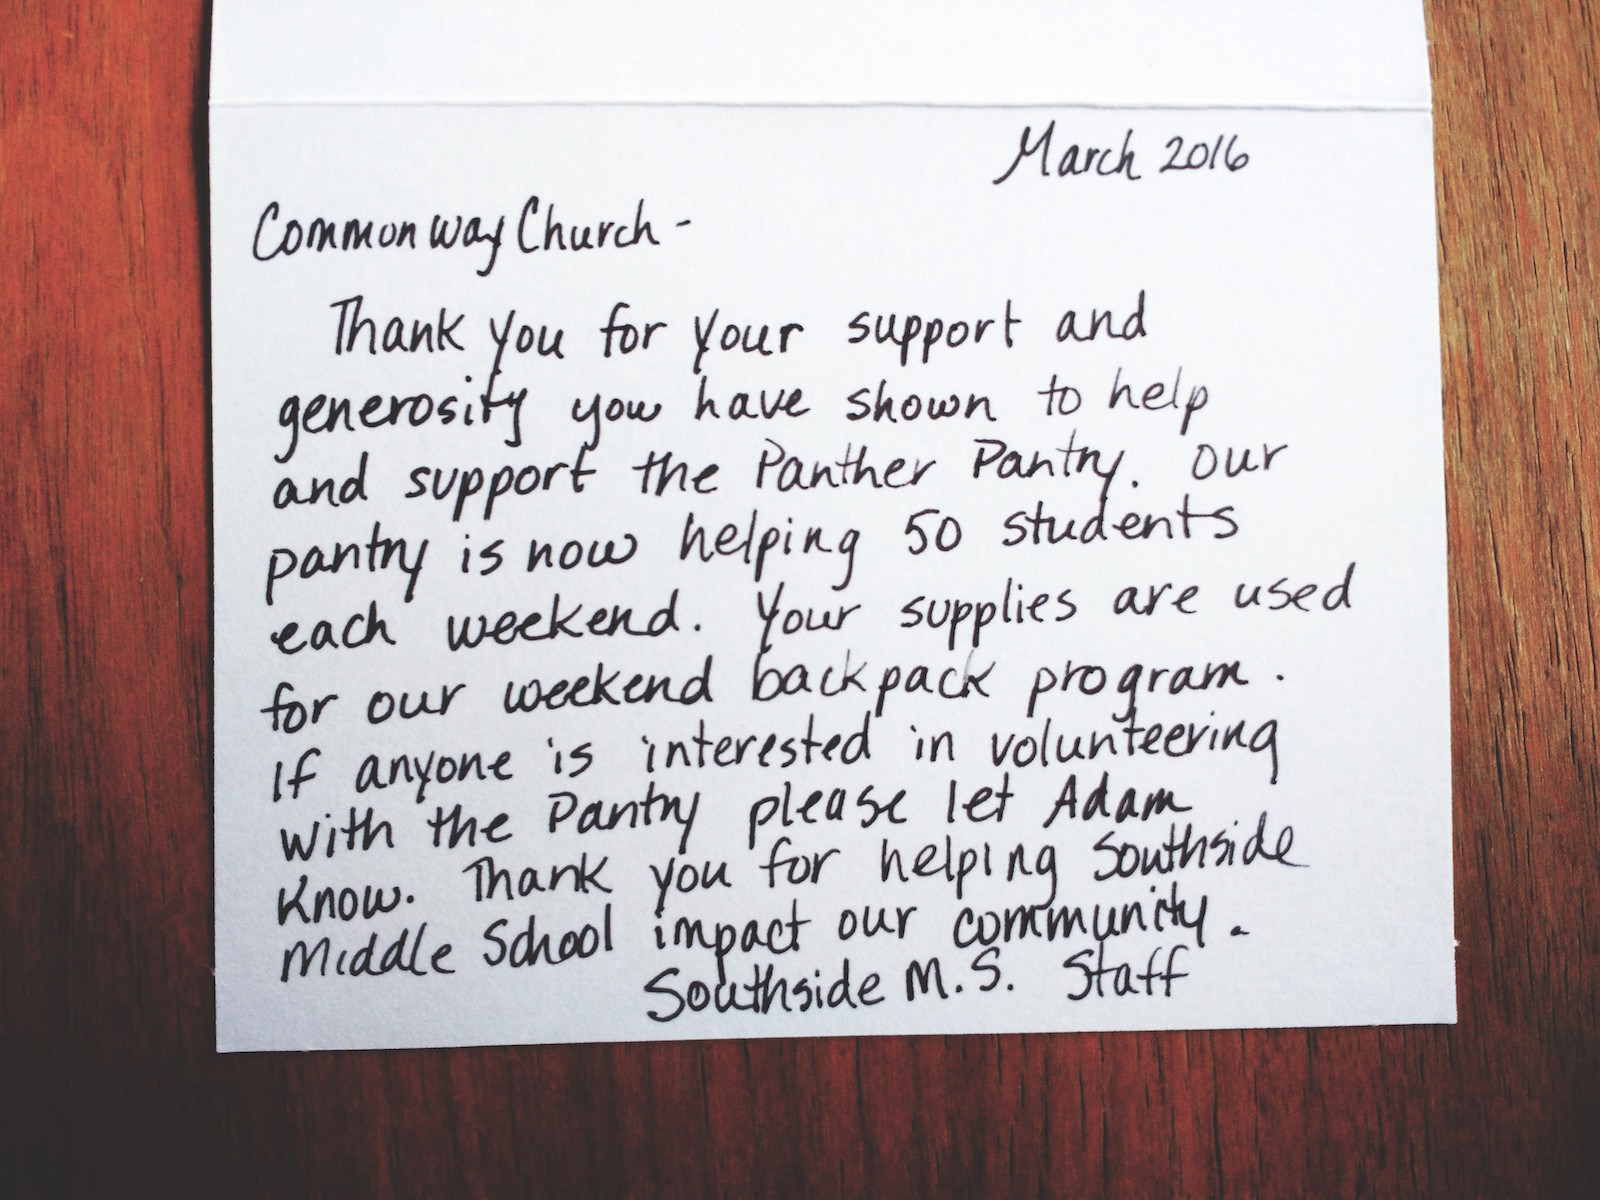 March 2016
Commonway Church -
Thank you for your support and
generosity you have shown to help
and support the Panther Pantry. Our
pantry is now helping 50 students
each weekend. Your supplies are used
for our weekend backpack program.
If anyone is interested in volunteering
with the Pantry please let Adam
Know. Thank you for helping Southside
Middle School impact our community.
Southside M.S. Staff